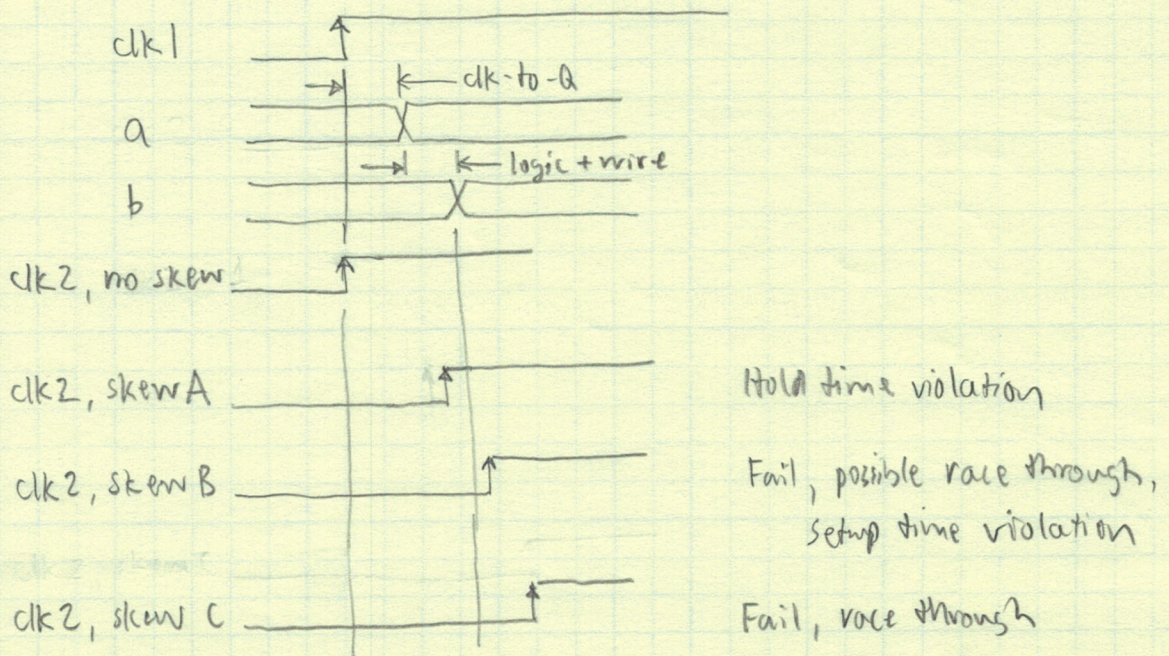 clk1
clk-to-Q
a
logic + wire
b
clk2, no skew
clk2, skew A
Hold time violation
clk2, skew B
Fail, possible race through,
setup time violation
clk2, skew C
Fail, race through